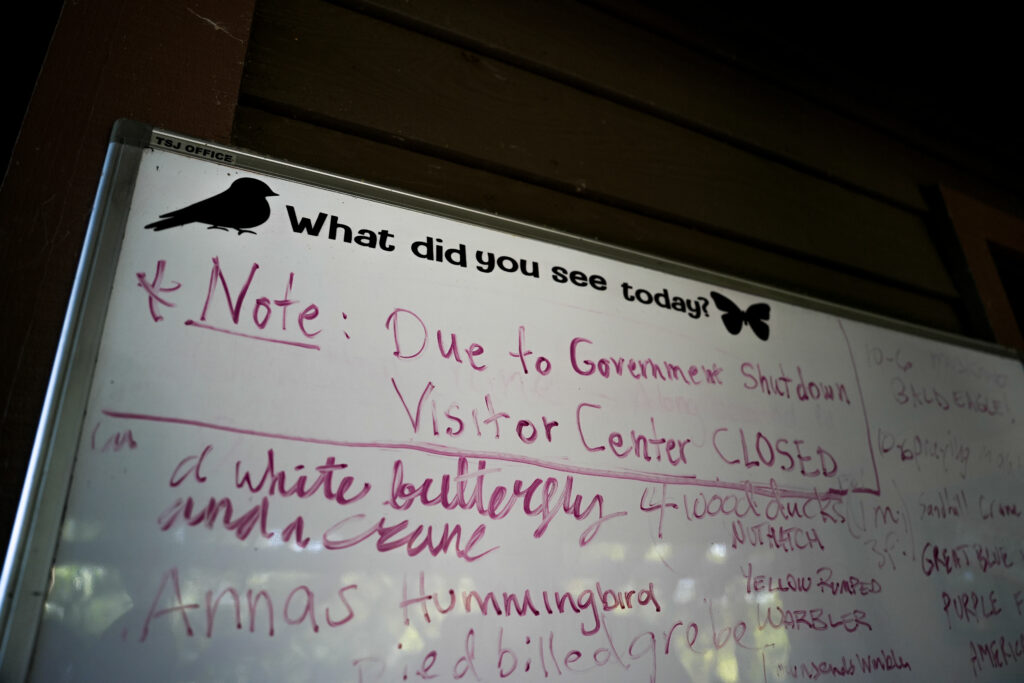 TSJ OFFICE
What did you see today?
* Note: Due to Government Shutdown
Visitor Center CLOSED
a white butterfly
and a crane
4 wood ducks (1 m.)
3 f.
NUTHATCH
Annas Hummingbird
Pied billed grebe
YELLOW RUMPED
WARBLER
Townsends
10-6
BALD EAGLE!
Sandhill Crane
GREAT BLUE
PURPLE F
AMERIC